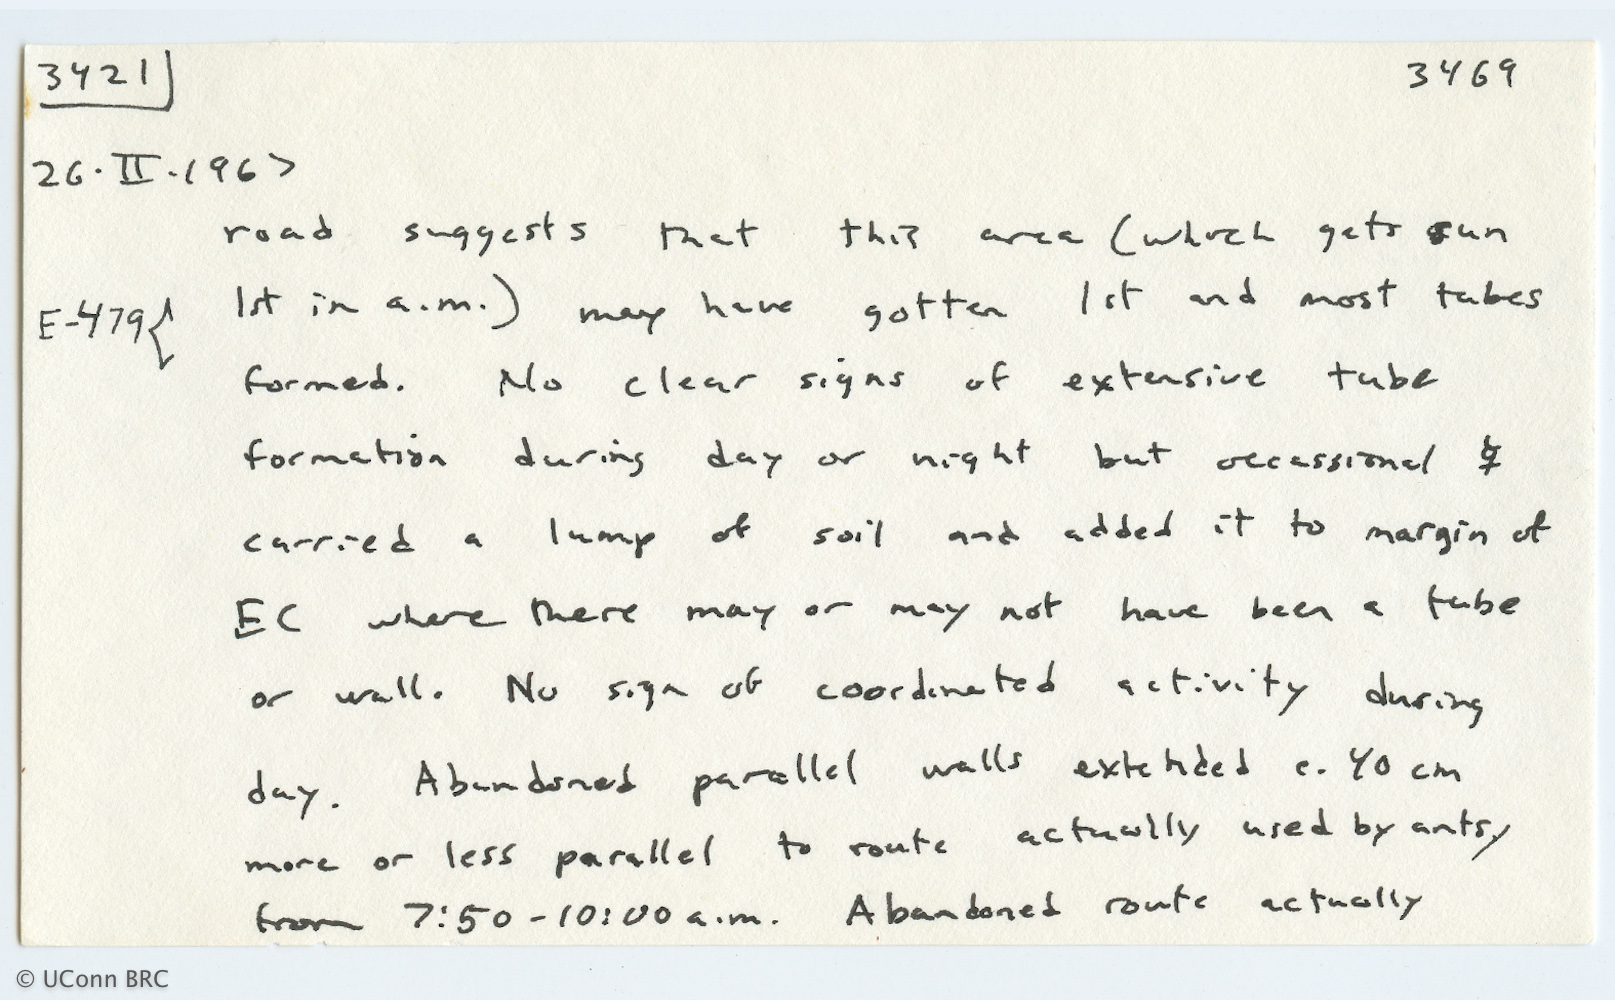 3421 3469
26·II·1967
road suggests that this area (which gets sun
E-479{ 1st in a.m.) may have gotten 1st and most tubes
formed. No clear signs of extensive tube
formation during day or night but occassional ☿
carried a lump of soil and added it to margin of
EC where there may or may not have been a tube
or wall. No sign of coordinated activity during
day. Abandoned parallel walls extended c. 40 cm
more or less parallel to route actually used by ants,
from 7:50-10:00 a.m. Abandoned route actually
© UConn BRC